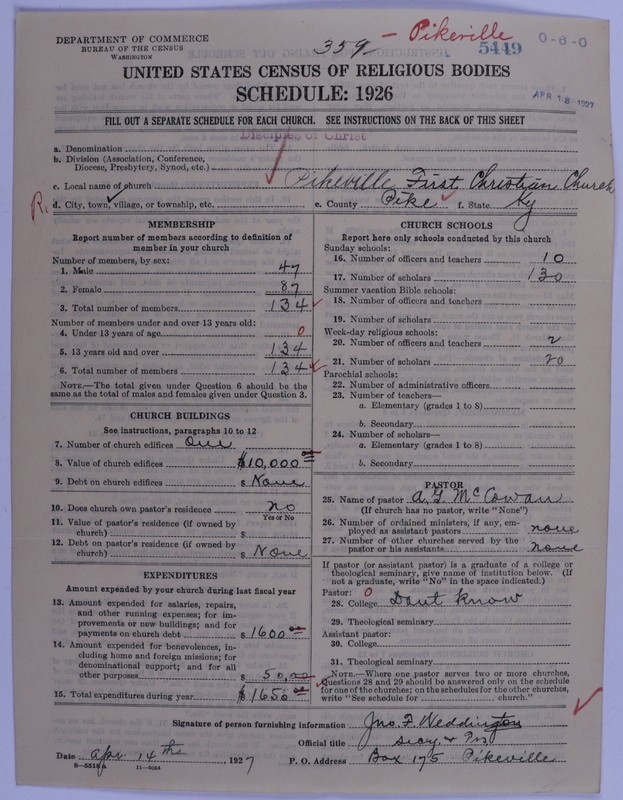 359 — Pikeville
DEPARTMENT OF COMMERCE
BUREAU OF THE CENSUS
WASHINGTON
5449
0-6-0
UNITED STATES CENSUS OF RELIGIOUS BODIES
SCHEDULE: 1926
APR 18 1927
FILL OUT A SEPARATE SCHEDULE FOR EACH CHURCH. SEE INSTRUCTIONS ON THE BACK OF THIS SHEET
Disciples of Christ
a. Denomination
b. Division (Association, Conference,
Diocese, Presbytery, Synod, etc.)
c. Local name of church Pikeville First Christian Church
R. d. City, town, village, or township, etc. e. County Pike f. State Ky
MEMBERSHIP
Report number of members according to definition of
member in your church
Number of members, by sex:
1. Male 47
2. Female 87
3. Total number of members 134
Number of members under and over 13 years old:
4. Under 13 years of age 0
5. 13 years old and over 134
6. Total number of members 134
NOTE.—The total given under Question 6 should be
same as the total of males and females given under Question 3.
CHURCH BUILDINGS
See instructions, paragraphs 10 to 12
7. Number of church edifices One
8. Value of church edifices $10,000 00
9. Debt on church edifices $ None
10. Does church own pastor's residence no
Yes or No
11. Value of pastor's residence (if owned by
church) $
12. Debt on pastor's residence (if owned by
church) $ None
EXPENDITURES
Amount expended by your church during last fiscal year
13. Amount expended for salaries, repairs,
and other running expenses; for im-
provements or new buildings; and for
payments on church debt $ 1600 00
14. Amount expended for benevolences, in-
cluding home and foreign missions; for
denominational support; and for all
other purposes $ 50,00
15. Total expenditures during year $ 1650 00
CHURCH SCHOOLS
Report here only schools conducted by this church
Sunday schools:
16. Number of officers and teachers 10
17. Number of scholars 130
Summer vacation Bible schools:
18. Number of officers and teachers
19. Number of scholars
Week-day religious schools:
20. Number of officers and teachers 2
21. Number of scholars 20
Parochial schools:
22. Number of administrative officers
23. Number of teachers—
a. Elementary (grades 1 to 8)
b. Secondary
24. Number of scholars—
a. Elementary (grades 1 to 8)
b. Secondary
PASTOR
25. Name of pastor McCowan
(If church has no pastor, write "None")
26. Number of ordained ministers, if any, em-
ployed as assistant pastors none
27. Number of other churches served by the
pastor or his assistants none
If pastor (or assistant pastor) is a graduate of a college or
theological seminary, give name of institution below. (If
not a graduate, write "No" in the space indicated.)
Pastor: 0
28. College Dont Know
29. Theological seminary
Assistant pastor:
30. College
31. Theological seminary
NOTE.—Where one pastor serves two or more churches,
Questions 28 and 29 should be answered only on the schedule
for one of the churches; on the schedules for the other churches,
write "See schedule for church."
Signature of person furnishing information Jno. F. Weddington
Official title
Date Apr 14th, 1927 P. O. Address Box 175 Pikeville
11—9084